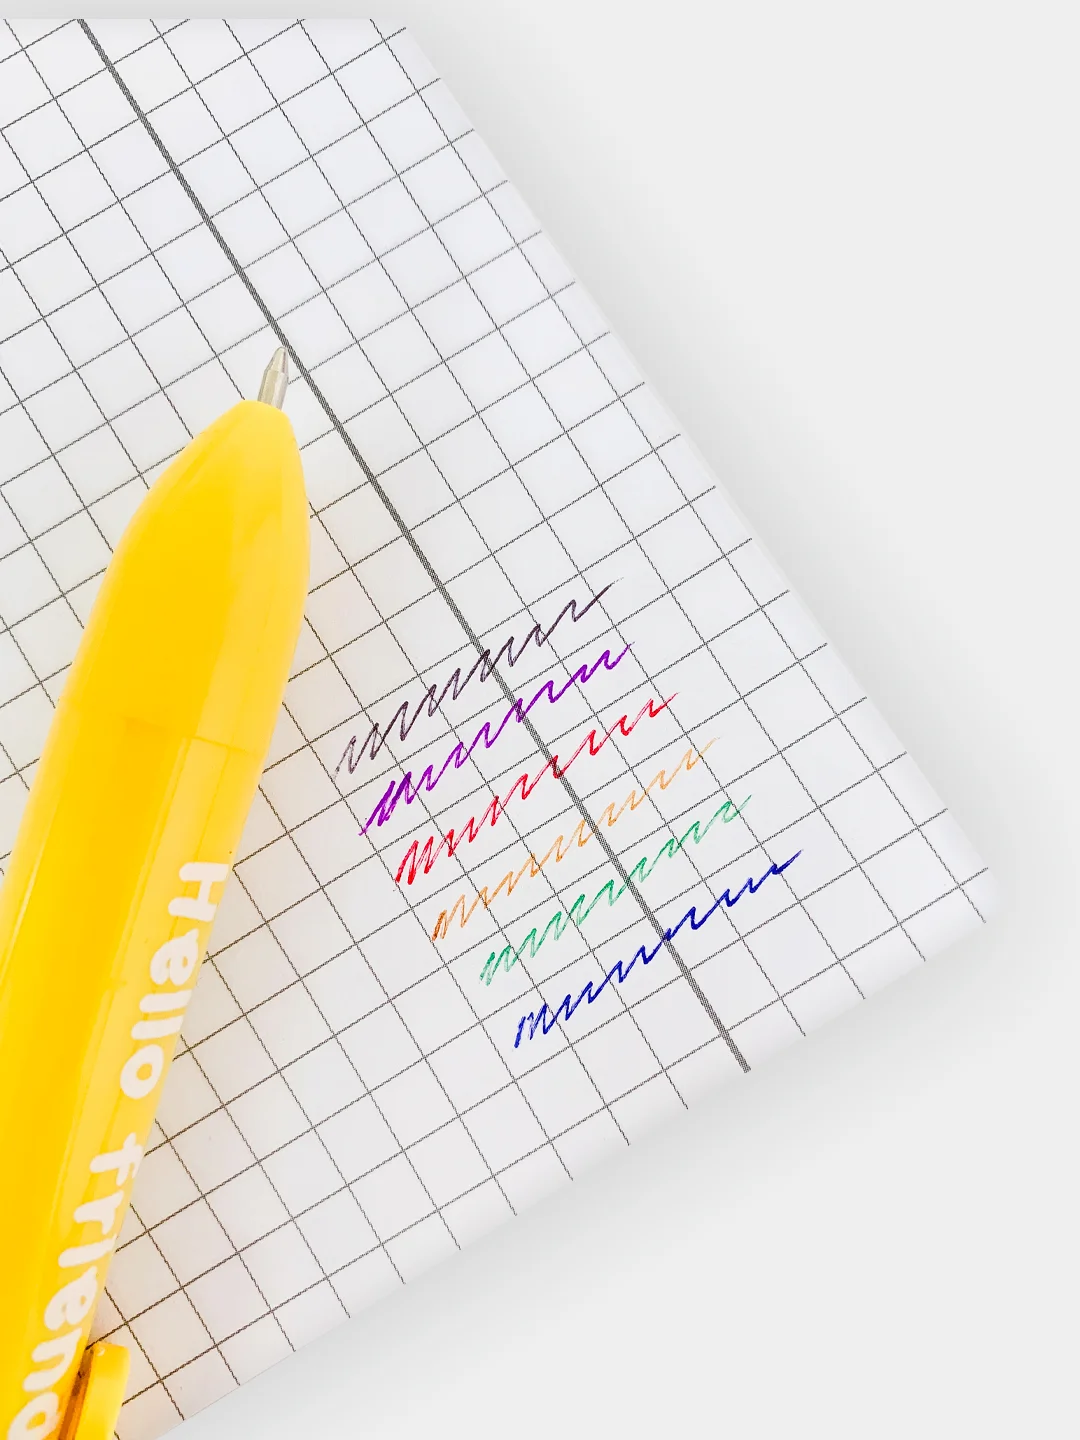 Hello friend